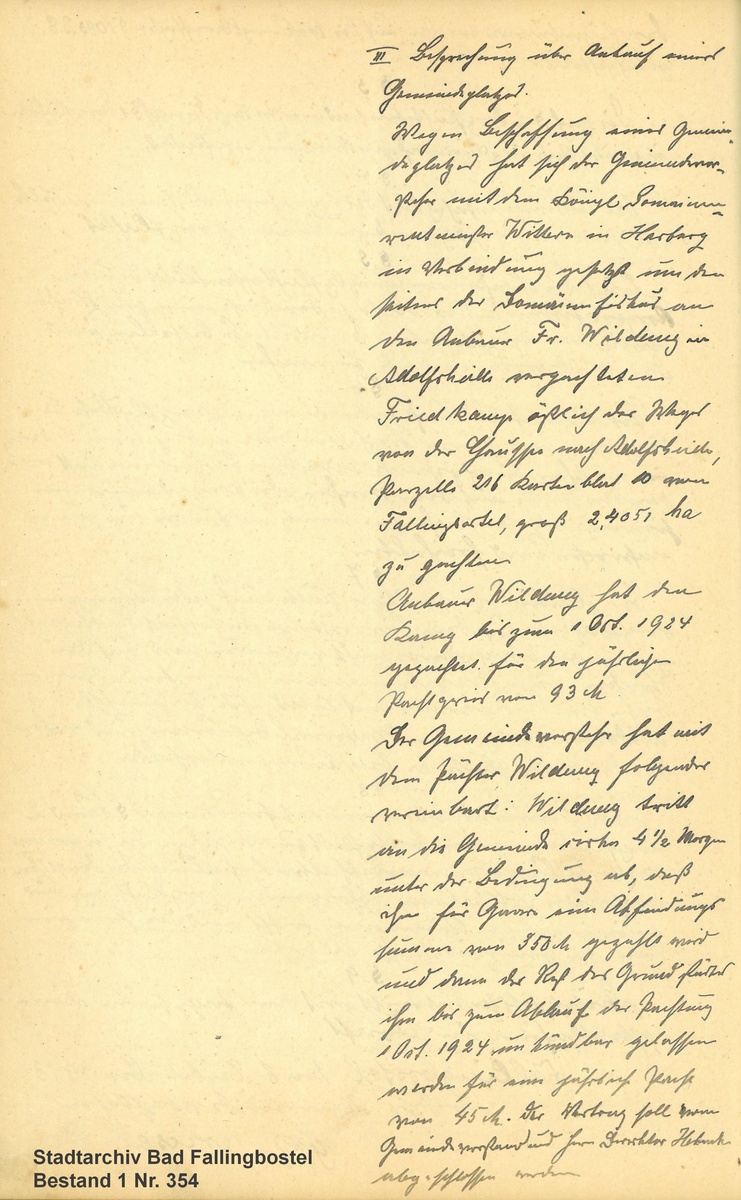 III Besprechung über Ankauf eines
Gemeindeplatzes.
Wegen Beschaffung eines Gemein-
deplatzes hat sich der Gemeindevor-
steher mit dem Königl. Domainen-
rentmeister Wittern in Harburg
in Verbindung gesetzt um den
seitens des Domänenfiskus an
den Anbauer Fr. Wildung in
Adolfsheide verpachteten
Friedkamp östlich des Weges
von der Chaussee nach Adolfsheide,
Parzelle 216 Kartenblat 10 von
Fallingbostel, groß 2,4051 ha
zu pachten
Anbauer Wildung hat den
Kamp bis zum 1 Oct. 1924
gepachtet für den jährlichen
Pachtpreis von 93 M
Der Gemeindevorsteher hat mit
dem Pächter Wildung folgendes
vereinbart: Wildung tritt
an die Gemeinde cirka 4 1/2 Morgen
unter der Bedingung ab, daß
ihm für eine Abfindungs
summe von 350 M gezahlt wird
und dann der Rest des Grundstückes
ihm bis zum Ablauf der Pachtung
1 Oct. 1924 unkündbar gelassen
werden für eine jährliche Pacht
von 45 M. Der Vertrag soll vom
Gemeindevorstand und Herrn Direktor
abgeschlossen werden
Stadtarchiv Bad Fallingbostel
Bestand 1 Nr. 354